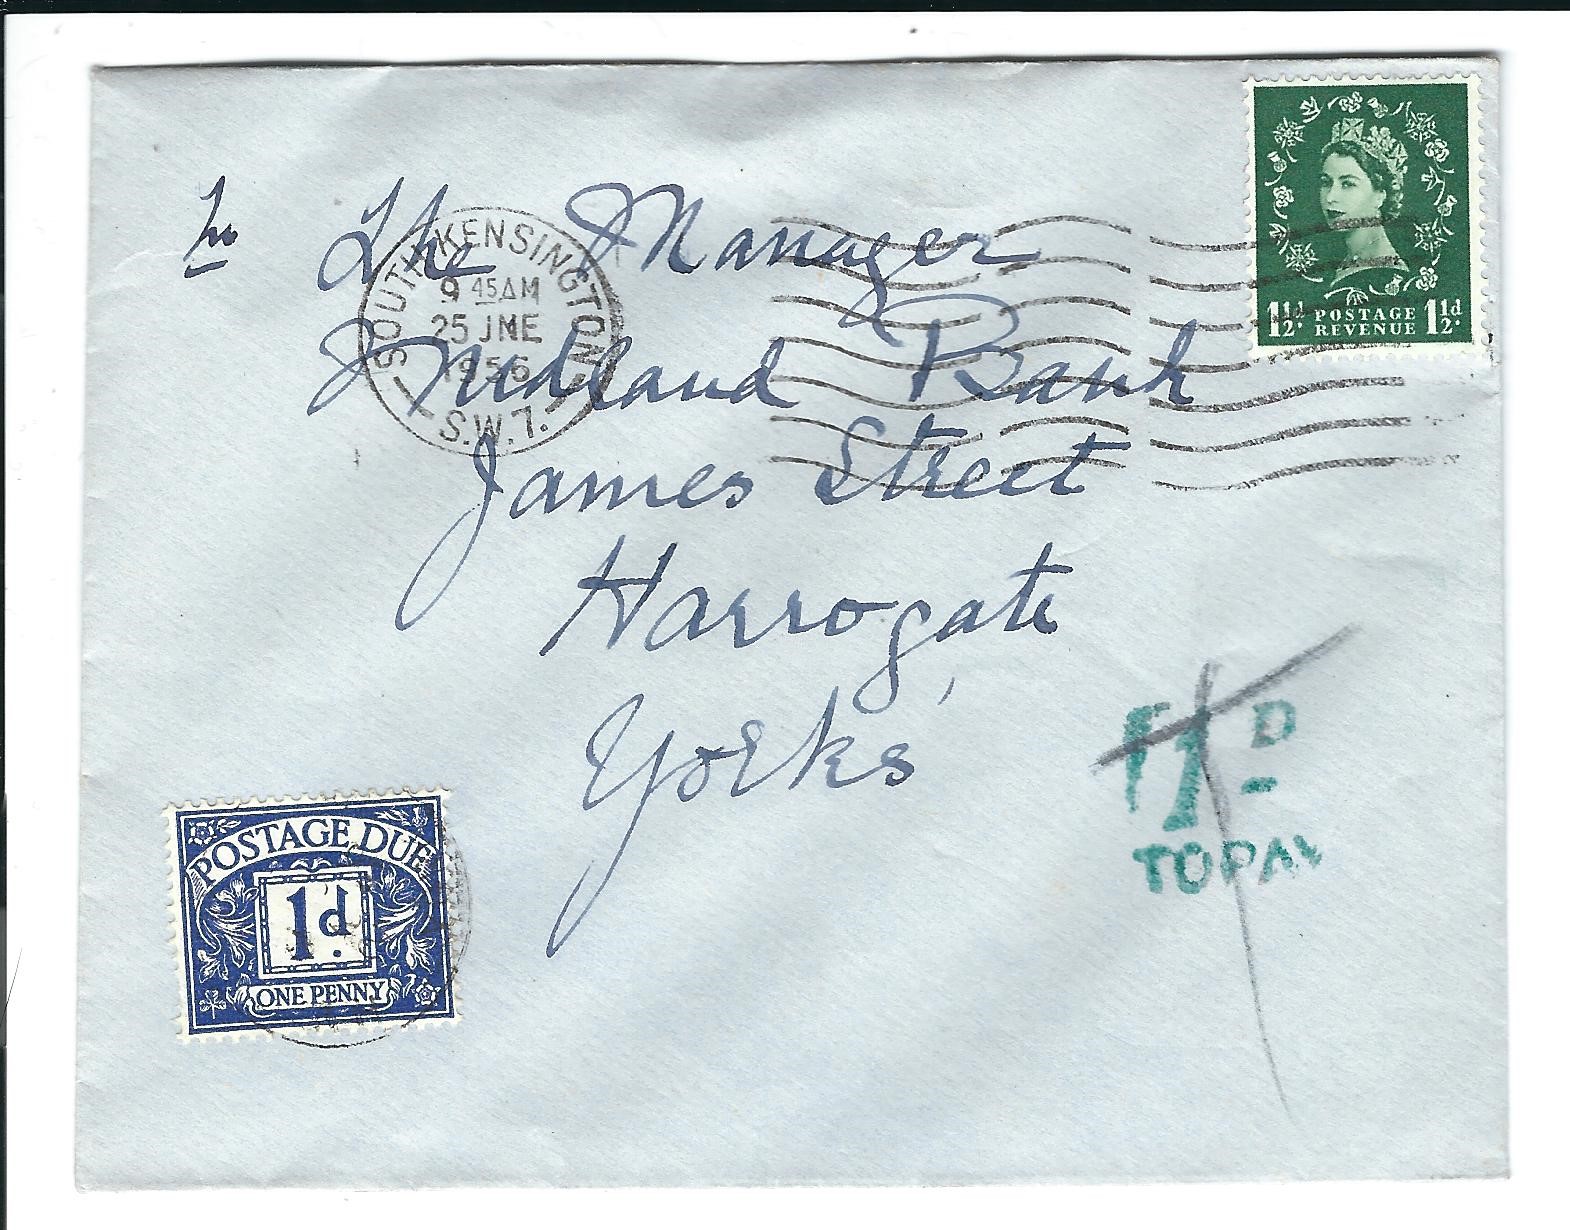 The Manager
Midland Bank
James Street
Harrogate
Yorks
SOUTH KENSINGTON
9 45AM
25 JNE
1956
S.W.7.
1½d. POSTAGE REVENUE 1½d.
1D
TO PAY
POSTAGE DUE
1d.
ONE PENNY